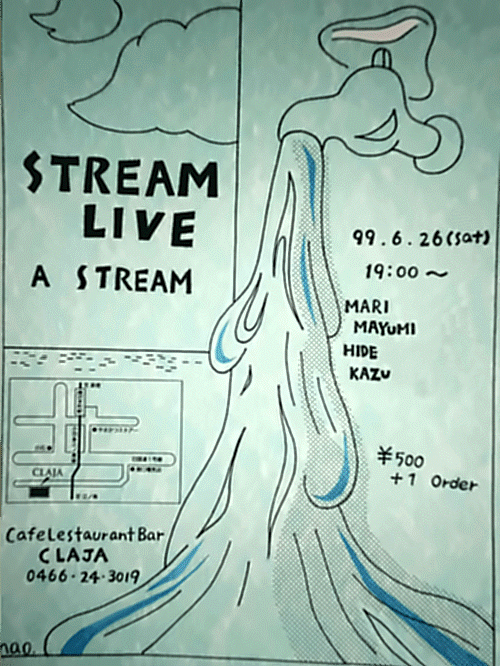 STREAM
LIVE
A STREAM
99.6.26(sat)
19:00～
MARI
MAYUMI
HIDE
KAZU
¥500
+1 Order
CLAJA
CafeLestaurantBar
CLAJA
0466・24・3019
nao.